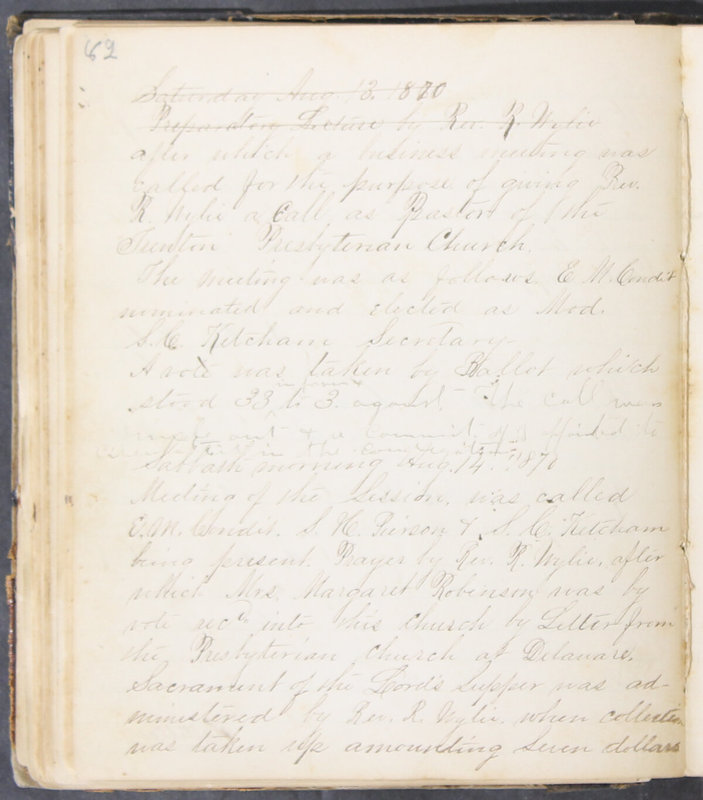 62
Saturday Aug. 13. 1870
Preparatory Lecture by Rev. R. Wylie
after which a business meeting was
called for the purpose of giving Rev.
R. Wylie a Call as Pastor of the
Trenton Presbyterian Church.
The meeting was as follows. E. M. Condit
nominated and elected as Mod.
S. C. Ketcham Secretary
A vote was taken by Ballot which
stood 33 in favor to 3. against. The Call was
made out & a Commit of 3 appointed to
in the congregation
Sabbath morning Aug. 14. 1870
Meeting of the Session, was called
E. M. Condit, S. H. Pierson & S. C. Ketcham
being present. Prayer by Rev. R. Wylie, after
which Mrs. Margaret Robinson was by
vote recd into this church by Letter from
the Presbyterian Church at Delaware.
Sacrament of the Lord's Supper was ad-
ministered by Rev. R. Wylie, when collection
was taken up amounting Seven dollars